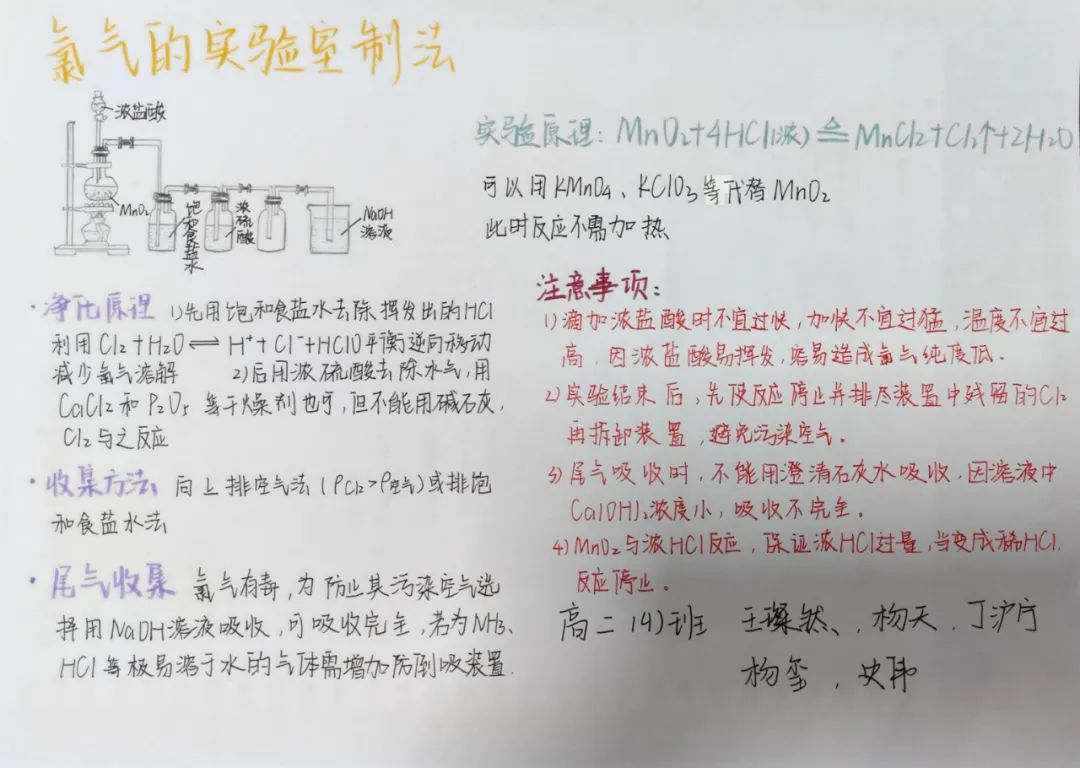 氯气的实验室制法
浓盐酸
MnO2
饱和食盐水
浓硫酸
NaOH
溶液
实验原理：MnO2+4HCl(浓) ≜ MnCl2+Cl2↑+2H2O
可以用KMnO4、KClO3等代替MnO2
此时反应不需加热
·净化原理 1)先用饱和食盐水去除挥发出的HCl
利用Cl2+H2O⇌H⁺+Cl⁻+HClO平衡逆向移动
减少氯气溶解 2)后用浓硫酸去除水气，用
CaCl2和P2O5等干燥剂也可，但不能用碱石灰，
Cl2与之反应
·收集方法 向上排空气法(ρCl2>ρ空气)或排饱
和食盐水法
·尾气收集 氯气有毒，为防止其污染空气选
择用NaOH溶液吸收，可吸收完全，若为NH3、
HCl等极易溶于水的气体需增加防倒吸装置.
注意事项：
1)滴加浓盐酸时不宜过快，加快不宜过猛，温度不宜过
高.因浓盐酸易挥发，容易造成氯气纯度低.
2)实验结束后，先使反应停止并排尽装置中残留的Cl2
再拆卸装置，避免污染空气。
3)尾气吸收时，不能用澄清石灰水吸收，因溶液中
Ca(OH)2浓度小，吸收不完全。
4)MnO2与浓HCl反应，保证浓HCl过量，当变成稀HCl，
反应停止。
高二(4)班 王璨然、杨天，丁沪宁
杨玺，史